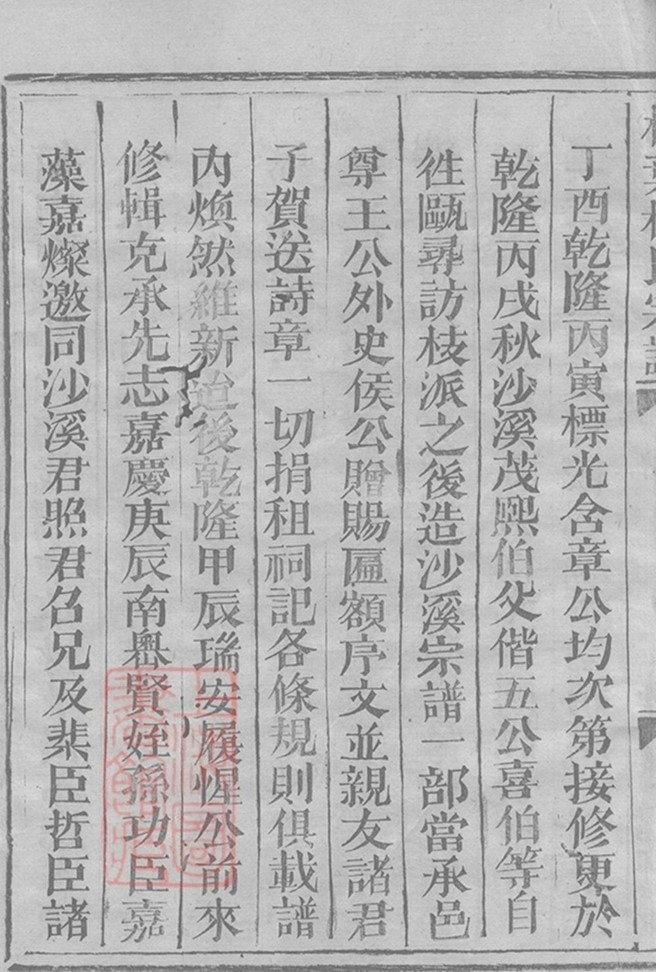 丁酉乾隆丙寅標光含章公均次第接修更於
乾隆丙戌秋沙溪茂熙伯父偕五公喜伯等自
徃甌尋訪枝派之後造沙溪宗譜一部當承邑
尊王公外史侯公贈賜匾額序文並親友諸君
子賀送詩章一切捐租祠記各條規則俱載譜
內煥然維新迨後乾隆甲辰瑞安履惺公前來
修輯克承先志嘉慶庚辰南嶴賢姪孫功臣嘉
藻嘉燦邀同沙溪君照君召兄及棐臣哲臣諸